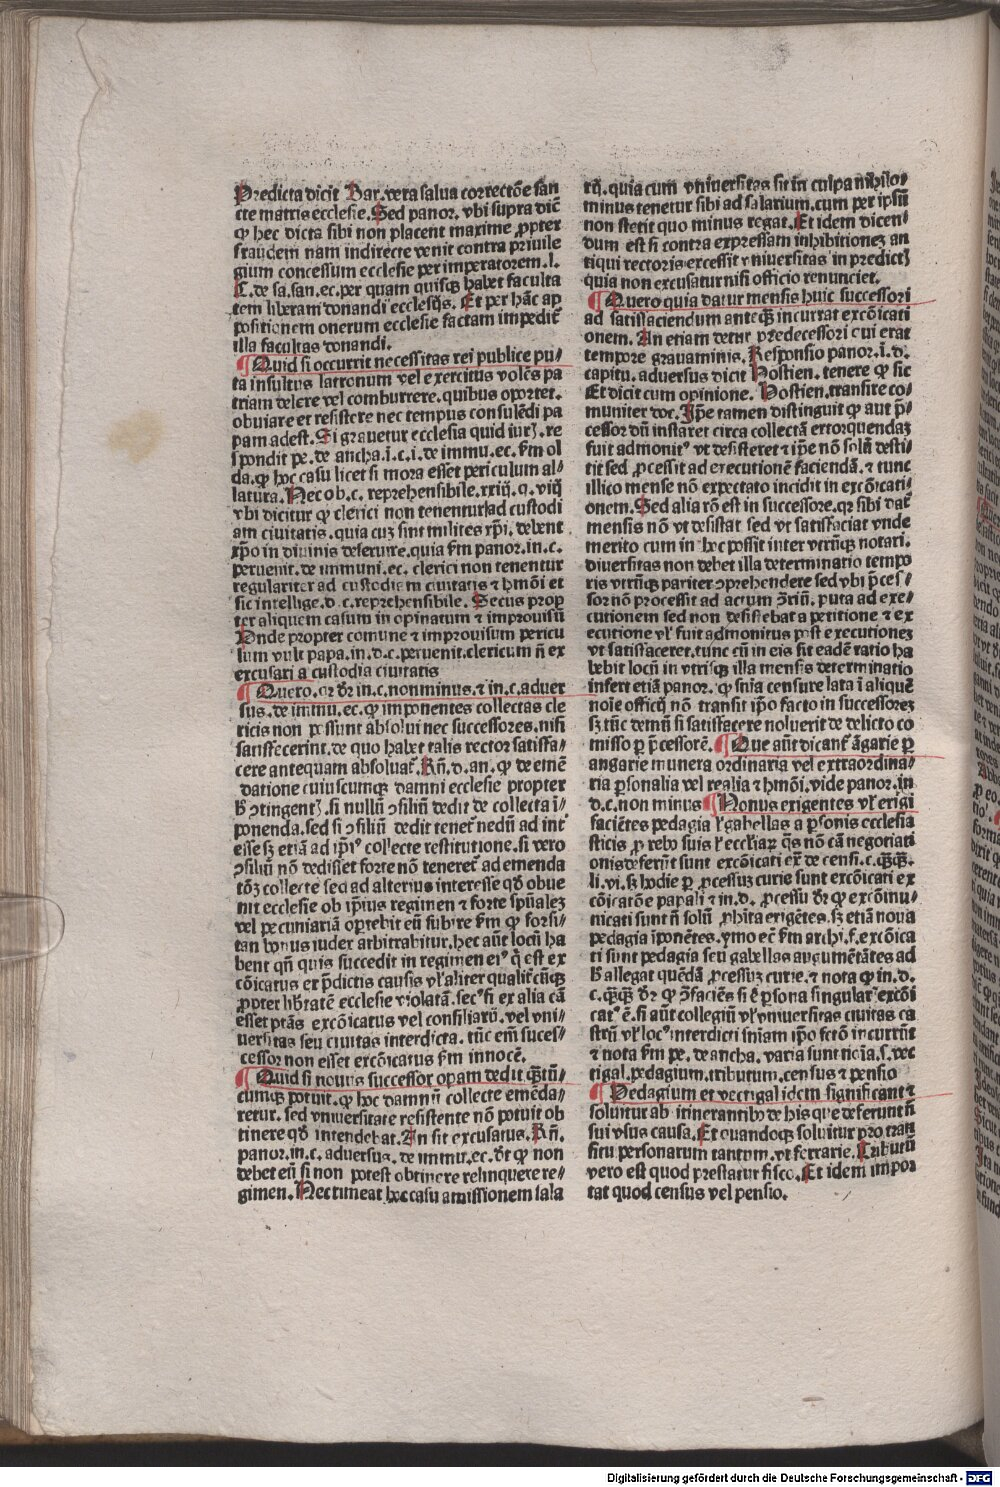 Predicta dicit Bar. vera salua correctōe san
cte matris ecclesie. Sed panor. vbi supra dic̄
ꝙ hec dicta sibi non placent maxime ꝓpter
fraudem nam indirecte venit contra priuile
gium concessum ecclesie per imperatorem. l.
C. de sa. san. ec. per quam quisqꝫ habet faculta
tem liberam donandi ecclesijs. Et per hāc ap
positionem onerum ecclesie factam impedit̄
illa facultas donandi.
¶ Quid si occurrit necessitas rei publice pu/
ta insultus latronum vel exercitus volēs pa
triam delere vel comburrere. quibus oportet.
obuiare et resistere nec tempus consulēdi pa
pam adest. Si grauetur ecclesia quid iur̄. re
spondit pe. de ancha. i. c. i. de immu. ec. ẜm ol
da. ꝙ hoc casu licet si mora esset periculum al/
latura. Nec ob. c. reprehensibile. xxiij. q. viij
vbi dicitur ꝙ clerici non tenentur ad custodi
am ciuitatis. quia cuꝫ sint milites xp̄i. debent
xp̄o in diuinis deseruire. quia ẜm panor. in. c.
peruenit. de immuni. ec. clerici non tenentur
regulariter ad custodiam ciuitatis ⁊ hmōi et
sic intellige. d. c. reprehensibile. Secus prop
ter aliquem casum inopinatum ⁊ improuisū
Unde propter comune ⁊ improuisum pericu
lum vult papa. in. d. c. peruenit. clericum n̄ ex
excusari a custodia ciuitatis
¶ Quero. qr d̄r in. c. non minus. ⁊ in. c. aduer
sus. de immu. ec. ꝙ imponentes collectas cle
ricis non possunt absolui nec successores. nisi
satisfecerint. de quo habet talis rector satisfa/
cere antequam absoluat̄. Rn̄. d. an. ꝙ de emē
datione cuiuscumqꝫ damni ecclesie propter
h̄ ꝯtingent̄. si nullū ꝯsiliū dedit de collecta ī/
ponenda. sed si ꝯsiliū dedit tenet̄ nedū ad int̄
esse sꝫ etiā ad ip̄i⁹ collecte restitutione. si vero
ꝯsiliū nō dedisset forte nō teneret̄ ad emenda
tōꝫ collecte sed ad alterius interesse qd̄ obue
nit ecclesie ob ip̄ius regimen ⁊ forte sp̄ualeꝫ
vel pecuniariā oportebit eū subire ẜm ꝙ forsi/
tan bonus iudex arbitrabitur. hec aūt locū ha
bent qn̄ quis succedit in regimen ei⁹ q̄ est ex
cōicatus ex p̄dictis causis vl̓ aliter qualit̄cūqꝫ
ꝓpter lib̄tatē ecclesie violatā. sec⁹ si ex alia cā
esset ptās excōicatus vel consiliariū. vel vni/
uersitas seu ciuitas interdicta. tūc em̄ suces/
cessor non esset excōicatus ẜm innocē.
¶ Quid si nouus successor opam dedit qꝫtū/
cumqꝫ potuit. ꝙ hoc damnū collecte emēda/
retur. sed vniuersitate resistente nō potuit ob
tinere qd̄ intendebat. An sit excusatus. Rn̄.
panor. in. c. aduersus. de immu. ec. d̄t ꝙ non
debet eū si non potest obtinere relinquere re/
gimen. Nec timeat hoc casu amissionem sala
rij. quia cum vniuersitas sit in culpa nihilo/
minus tenetur sibi ad salarium. cum per ipsū
non stetit quo minus regat. Et idem dicen/
dum est si contra expressam inhibitionez an
tiqui rectoris excessit vniuersitas in predict̄
quia non excusatur nisi officio renunciet.
¶ Quero quia datur mensis huic successori
ad satisfaciendum anteqꝫ incurrat excōicati
onem. An etiam detur p̄decessori cui erat
tempore grauaminis. Responsio panor. i. d.
capitu. aduersus dicit Hostien. tenere ꝙ sic
Et dicit cum opinione. Hostien. transire co/
muniter doc. Ip̄e tamen distinguit ꝙ aut p̄/
cessor dū instaret circa collectā extorquendaꝫ
fuit admonit⁹ vt desisteret ⁊ ip̄e nō solū desti/
tit sed ꝓcessit ad executionē faciendā. ⁊ tunc
illico mense nō expectato incidit in excōicati/
onem. Sed alia rō est in successore. qr sibi dat̄
mensis nō vt desistat sed vt satisfaciat vnde
merito cum in hoc possit inter vtrūqꝫ notari.
diuersitas non debet illa determinatio tempo
ris vtrūqꝫ pariter ꝯprehendere sed vbi p̄ces/
sor nō processit ad actum ꝯ̄riū. puta ad exe/
cutionem sed non desistebat a petitione ⁊ ex
ecutione vl̓ fuit admonitus post executionez
vt satisfaceret. tunc cū in eis sit eadē ratio ha
bebit locū in vtrisqꝫ illa mensis determinatio
infert etiā panor. ꝙ sn̄ia censure lata ī aliquē
noīe officij nō transit ip̄o facto in successorez
sꝫ tūc demū si satisfacere noluerit de delicto co
misso ꝑ p̄cessorē. ¶ Que aūt dicant̄ āgarie ꝑ
angarie munera ordinaria vel extraordina/
ria ꝑsonalia vel realia ⁊ hmōi. vide panor. in
d. c. non minus ¶ Nonus exigentes vl̓ exigi
faciētes pedagia l̓ gabellas a ꝑsonis ecclesia
sticis ꝓ rebo suis l̓ eccl̓iaꝝ qꝫs nō cā negotiati
onis deferūt sunt excōicati ex̄ de censi. c. qꝫqꝫ.
li. vi. sꝫ hodie ꝑ ꝓcessuꝫ curie sunt excōicati ex
cōicatōe papali ⁊ in. d. ꝓcessu d̄r ꝙ excōmu/
nicati sunt n̄ solū ꝓhīta exigētes. sꝫ etiā noua
pedagia īponētes. ymo ec̄ ẜm archi. s. excōica
ti sunt pedagia seu gabellas augumētātes ad
h̄ allegat quēdā ꝓcessuꝫ curie. ⁊ nota ꝙ in. d.
c. qꝫqꝫ d̄r ꝙ ꝯ̄faciēs si ē ꝑsona singular̄ excōi
cat̄ ē. si aūt collegiū vl̓ vniuersitas ciuitas ca
strū vl̓ loc⁹ interdicti sn̄iam ip̄o fctō incurrūt
⁊ nota ẜm pe. de ancha. varia sunt noīa. s. vec
tigal. pedagium. tributum. census ⁊ pensio
¶ Pedagium et vectigal idem significant ⁊
soluitur ab itinerantibꝫ de his que deferunt n̄
sui vsus causa. Et quandoqꝫ soluitur pro tran
situ personarum tantum. vt ferrarie. Tributū
vero est quod prestatur fisco. Et idem impor
tat quod census vel pensio.
Digitalisierung gefördert durch die Deutsche Forschungsgemeinschaft - DFG